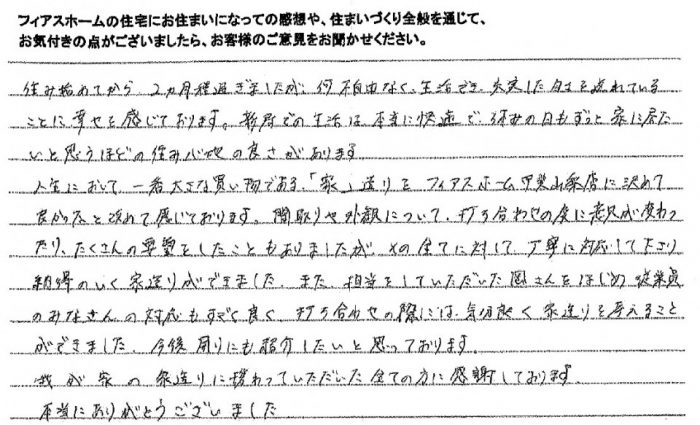 フィアスホームの住宅にお住まいになっての感想や、住まいづくり全般を通じて、
お気付きの点がございましたら、お客様のご意見をお聞かせください。
住み始めてから、2ヵ月程過ぎましたが、何不自由なく、生活でき、充実した日々を送れている
ことに幸せを感じております。新居での生活は、本当に快適で、休みの日もずっと家に居た
いと思うほどの住み心地の良さがあります。
人生において、一番大きな買い物である、「家」造りを、フィアスホーム 店に決めて
良かったと改めて感じております。間取りや外観について、打ち合わせの度に意見が変わっ
たり、たくさんの要望をしたこともありましたが、その全てに対して、丁寧に対応して下さり
納得のいく家造りができました。また、担当をしていただいた さんをはじめ従業員
のみなさんの対応もすごく良く、打ち合わせの際には、気分良く家造りを考えること
ができました。今後周りにも紹介したいと思っております。
我が家の家造りに携わっていただいた全ての方に感謝しております。
本当にありがとうございました